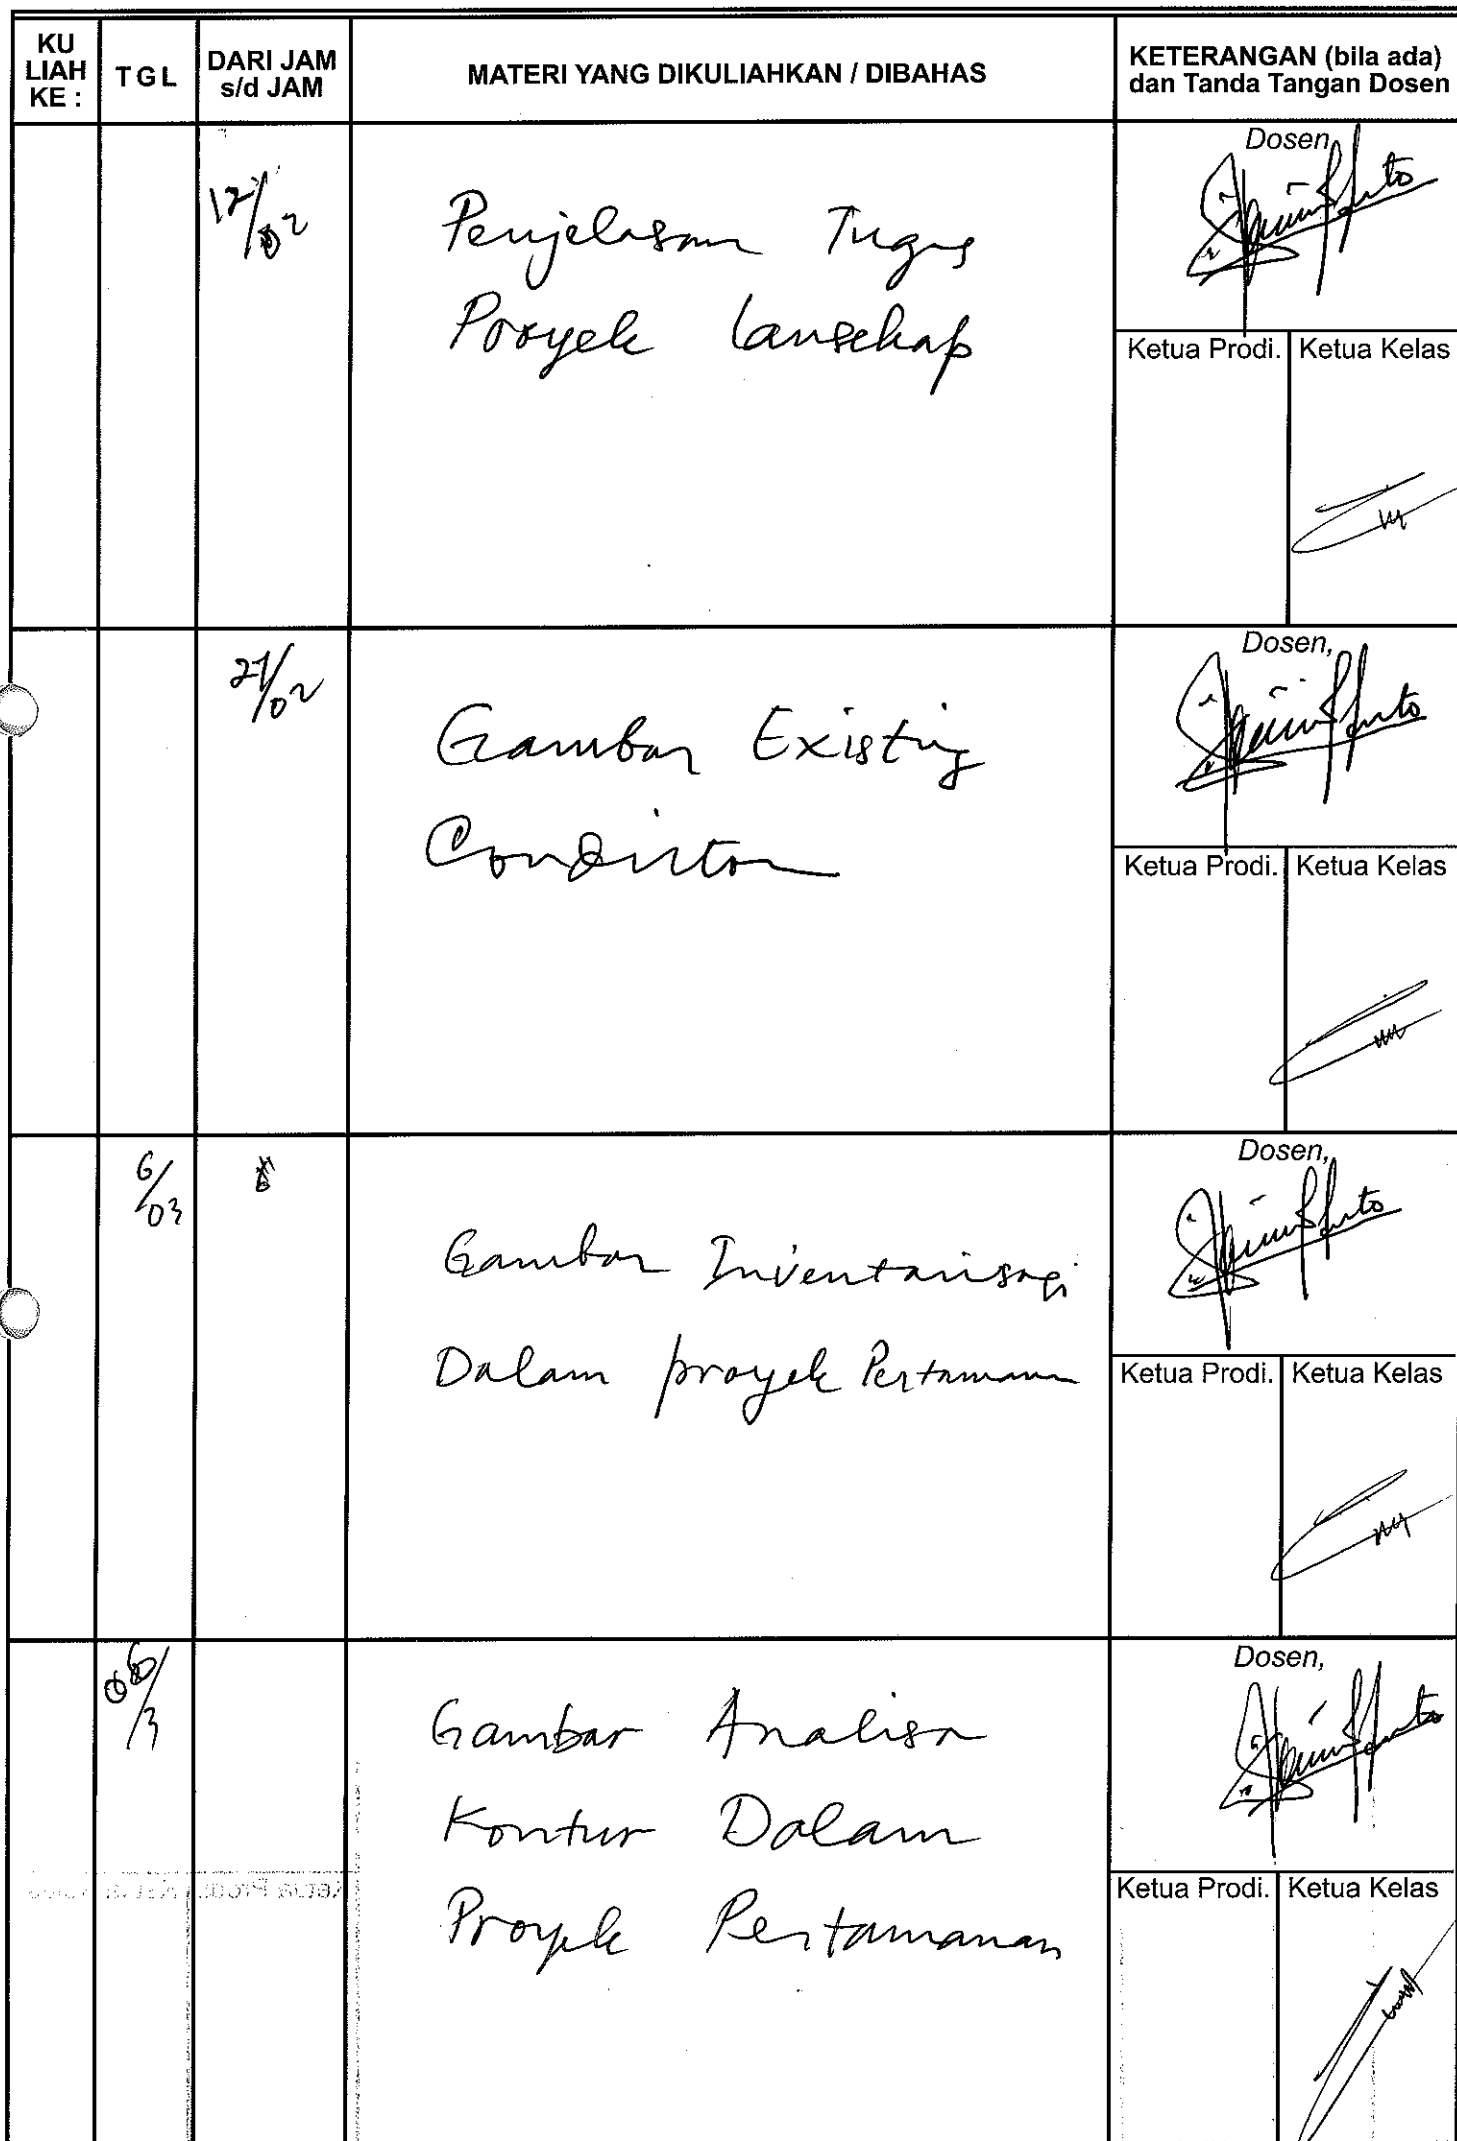 KU LIAH KE :
TGL
DARI JAM s/d JAM
MATERI YANG DIKULIAHKAN / DIBAHAS
KETERANGAN (bila ada) dan Tanda Tangan Dosen
12/02
Penjelasan Tugas
Proyek Lansekap
Dosen,
Ketua Prodi.
Ketua Kelas
/02
Gambar Existing
Condition
Dosen,
Ketua Prodi.
Ketua Kelas
6/03
Gambar Inventarisasi
Dalam proyek Pertamanan
Dosen,
Ketua Prodi.
Ketua Kelas
/3
Gambar Analisa
Kontur Dalam
Proyek Pertamanan
Dosen,
Ketua Prodi.
Ketua Kelas